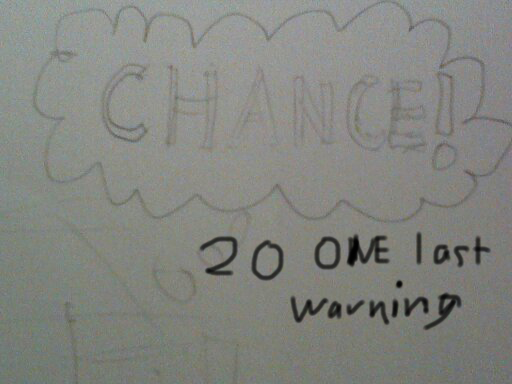 CHANCE!
20 ONE last
warning